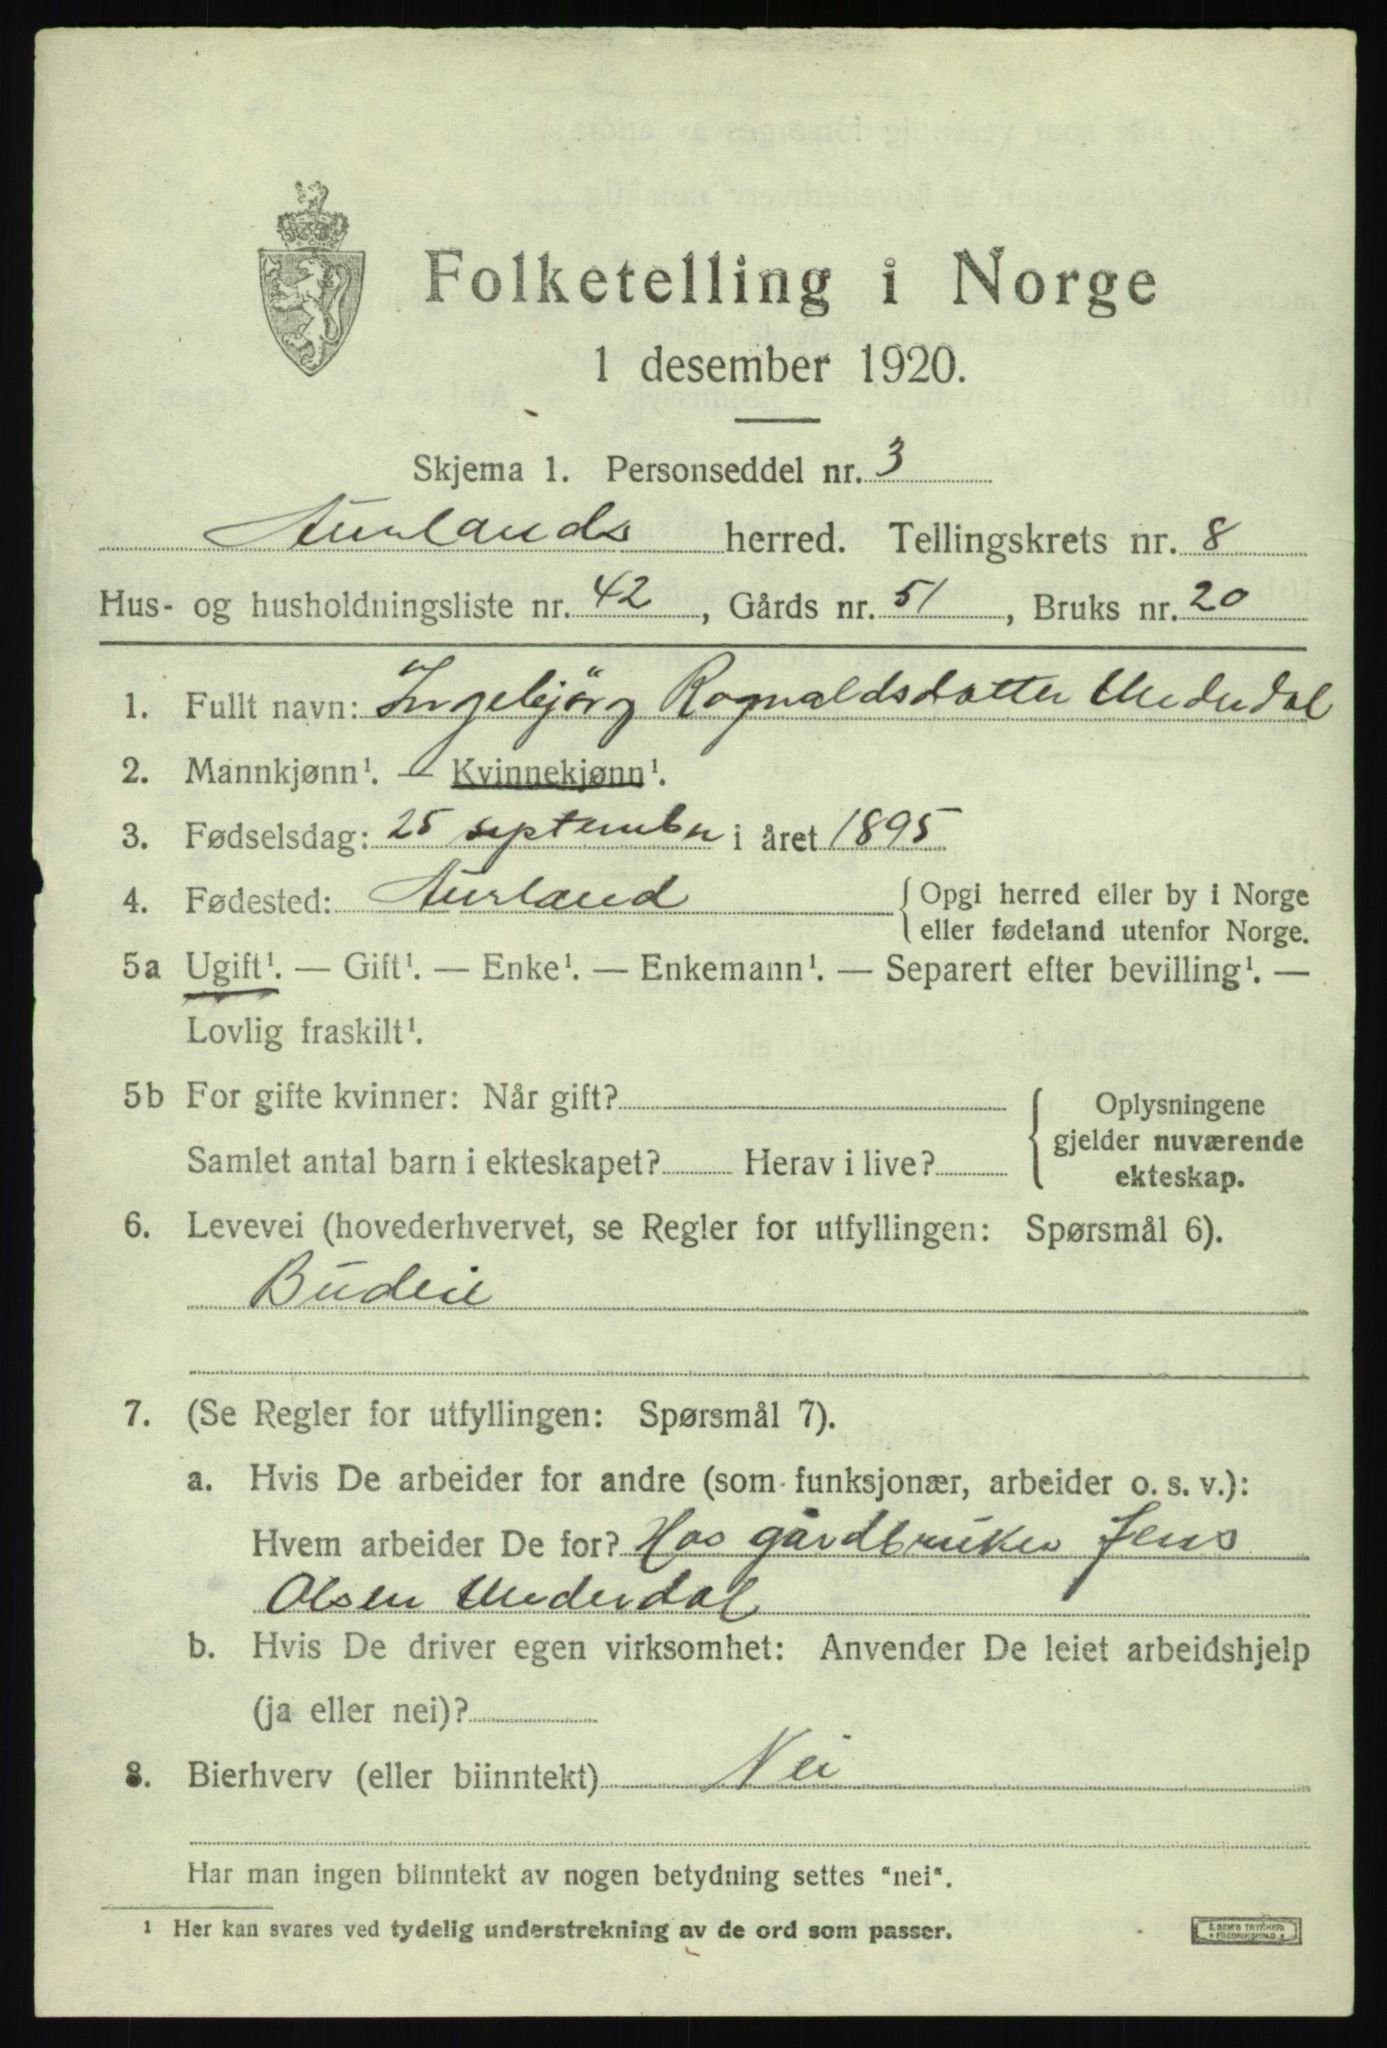 Folketelling i Norge
1 desember 1920.
Skjema 1. Personseddel nr. 3
Aurlands herred. Tellingskrets nr. 8
Hus- og husholdningsliste nr. 42, Gårds nr. 51, Bruks nr. 20
1. Fullt navn: Ingebjörg Rognaldsdatter Underdal
2. Mannkjønn¹. — Kvinnekjønn¹.
3. Fødselsdag: 25 september i året 1895
4. Fødested: Aurland { Opgi herred eller by i Norge
eller fødeland utenfor Norge.
5a Ugift¹. — Gift¹. — Enke¹. — Enkemann¹. — Separert efter bevilling¹. —
Lovlig fraskilt¹.
5b For gifte kvinner: Når gift? { Oplysningene
gjelder nuværende
Samlet antal barn i ekteskapet? Herav i live?
ekteskap.
6. Levevei (hovederhvervet, se Regler for utfyllingen: Spørsmål 6).
Budeie
7. (Se Regler for utfyllingen: Spørsmål 7).
a. Hvis De arbeider for andre (som funksjonær, arbeider o. s. v.):
Hvem arbeider De for? Hos gårdbruker Jens
Olsen Underdal
b. Hvis De driver egen virksomhet: Anvender De leiet arbeidshjelp
(ja eller nei)?
8. Bierhverv (eller biinntekt) Nei
Har man ingen biinntekt av nogen betydning settes "nei".
¹ Her kan svares ved tydelig understrekning av de ord som passer.